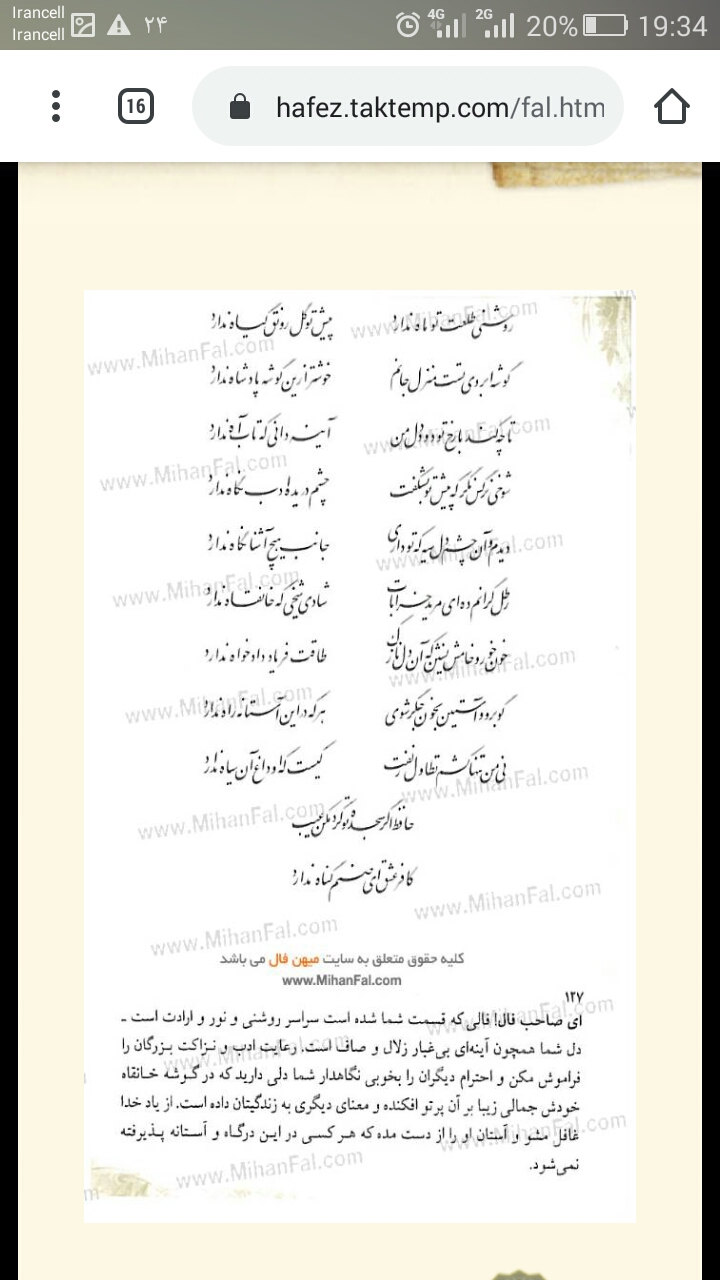 Irancell
Irancell
۲۴
4G
2G
20%
19:34
16
hafez.taktemp.com/fal.htm
روشنی طلعت تو ماه ندارد پیش تو گل رونق گیاه ندارد
گوشه ابروی تست منزل جانم خوشتر ازین گوشه پادشاه ندارد
تا چه کند با رخ تو دود دل من آینه دانی که تاب آه ندارد
شوخی نرگس نگر که پیش تو بشکفت چشم دریده ادب نگاه ندارد
دیدم و آن چشم دل سیه که تو داری جانب هیچ آشنا نگاه ندارد
رطل گرانم ده ای مرید خرابات شادی شیخی که خانقاه ندارد
خون خور و خامش نشین که آن دل نازک طاقت فریاد دادخواه ندارد
گو برو و آستین بخون جگر شوی هر که در این آستانه راه ندارد
نی من تنها کشم تطاول زلفت کیست که او داغ آن سیاه ندارد
حافظ اگر سجده تو کرد مکن عیب
کافر عشق ای صنم گناه ندارد
کلیه حقوق متعلق به سایت میهن فال می باشد
www.MihanFal.com
۱۲۷
ای صاحب فال! فالی که قسمت شما شده است سراسر روشنی و نور و ارادت است ـ
دل شما همچون آینه‌ای بی‌غبار زلال و صاف است. رعایت ادب و نزاکت بزرگان را
فراموش مکن و احترام دیگران را بخوبی نگاهدار شما دلی دارید که در گوشه خانقاه
خودش جمالی زیبا بر آن پرتو افکنده و معنای دیگری به زندگیتان داده است. از یاد خدا
غافل مشو و آستان او را از دست مده که هر کسی در این درگاه و آستانه پذیرفته
نمی‌شود.